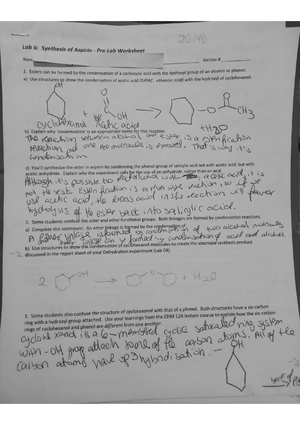 Lab 6: Synthesis of Aspirin - Pre-Lab Worksheet
Name
Section #
1. Esters can be formed by the condensation of a carboxylic acid with the hydroxyl group of an alcohol or phenol.
a) Use structures to show the condensation of acetic acid (IUPAC: ethanoic acid) with the hydroxyl of cyclohexanol.
OH
+
OH
→
O
CH3
cyclohexanol Acetic acid
+H2O
b) Explain why 'condensation' is an appropriate name for this reaction.
The reaction between alcohol and ester is a esterification
reaction and one H2O molecule is removed. That is why it's
condensation.
c) You'll synthesize aspirin in by condensing the phenol group of salicylic acid not with acetic acid, but with
acetic anhydride. Explain what the experiment calls for the use of an anhydride, rather than an acid.
Although it's possible to acetic acid, it is
not the best. Esterification is a reversible reaction, so if we
use acetic acid, the excess acid in the reaction will favor
hydrolysis of the ester back into salicylic acid.
2. Some students confuse the ester and ether functional groups. Both linkages are formed by condensation reactions.
a) Complete this statement: An ether linkage is formed by the condensation of
A ether linkage is formed by condensation of two alcohol molecules
b) Use structures to show the condensation of cyclohexanol molecules to create the alternate synthesis product
discussed in the report sheet of your Dehydration experiment (Lab 04).
2
OH
→
O
+ H2O
3. Some students also confuse the structure of cyclohexanol with that of phenol. Both structures have a six-carbon
ring with a hydroxyl group attached. Use your learnings from the CHM 12A lecture course to explain how the six-carbon
rings of cyclohexanol and phenol are different from one another.
cyclohexanol is a 6-membered cyclic saturated ring system
with -OH group attach to one of the carbon atoms. All of the
carbon atoms have sp3 hybridisation.
OH